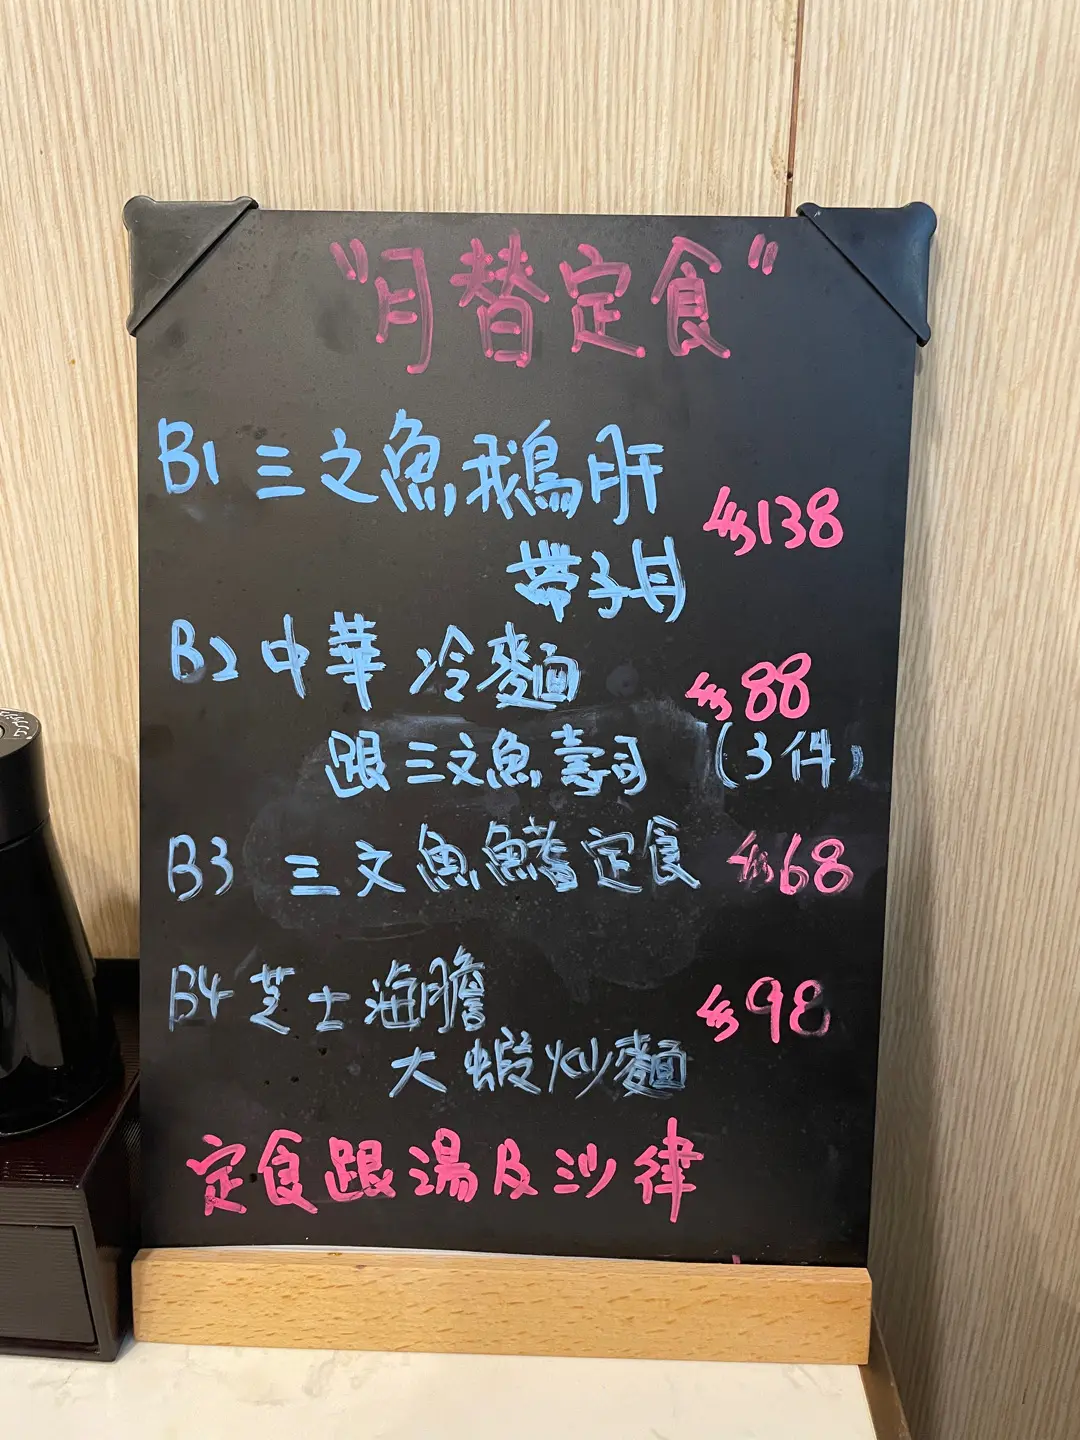 "月替定食"
B1 三文魚鵝肝
帶子丼 $138
B2 中華冷麵 $88
跟三文魚壽司 (3件)
B3 三文魚鰭定食 $68
B4 芝士海膽
大蝦炒麵 $98
定食跟湯及沙律